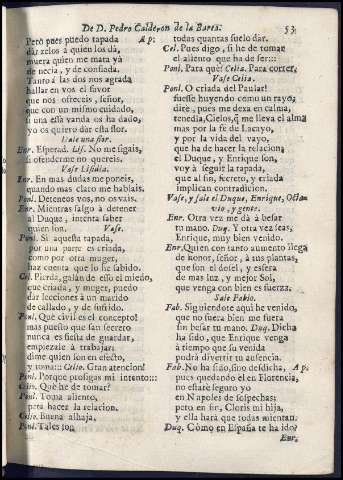 De D. Pedro Calderon de la Barca. 53
Però pues puedo tapada Ap:
dàr zelos à quien los dà,
muera quien me mata yà
de necia, y de confiada.
Tanto à las dos nos agrada
hallar en vos el favor
que nos ofreceis, señor,
que con un mismo cuidado,
si una essa vanda os ha dado,
yo os quiero dàr esta flor.
Dale una flor.
Enr. Esperad. Lis. No me sigais,
si ofenderme no quereis.
Vase Lisidia.
Enr. En mas dudas me poneis,
quando mas claro me hablais.
Ponl. Deteneos vos, no os vais.
Enr. Mientras salgo à detener
al Duque, intenta saber
quien son. Vase.
Ponl. Si aquesta tapada,
por una parte es criada,
como por otra muger,
haz cuenta que lo he sabido.
Cel. Pierda, galàn de esso el miedo,
que criada, y muger, puedo
dàr lecciones à un marido
de callado, y de sufrido.
Ponl. Què civil es el concepto!
mas puesto que san secreto
nunca es fiesta de guardar,
empiezale à trabajar:
dime quien son en efecto,
y toma::: Celio. Gran atencion!
Ponl. Porque prosigas mi intento:::
Celio. Què he de tomar?
Ponl. Toma aliento,
para hacer la relacion.
Celio. Buena alhaja.
Ponl. Tales son
todas quantas suelo dar.
Cel. Pues digo, si he de tomar
el aliento que ha de ser:::
Ponl. Para què? Celia. Para correr.
Vase Celia.
Ponl. O criada del Paular!
fuesse huyendo como un rayo,
dire, pues me dexa en calma,
tenedla, Cielos, q̃ me lleva el alma
mas por la fe de Lacayo,
y por la vida del vayo,
que ha de hacer la relacion,
el Duque, y Enrique son,
voy à seguir la tapada,
que al fin, secreto, y criada
implican contradicion.
Vase, y sale el Duque, Enrique, Octavio,
y gente.
Enr. Otra vez me dà à besar
tu mano. Duq. Y otra vez seas,
Enrique, muy bien venido.
Enr. Quien con tanto aumento llega
de honor, señor, à tus plantas,
que son el dosel, y esfera
de mas luz, y mejor Sol,
que venga con bien es fuerza.
Sale Fabio.
Fab. Siguiendote aqui he venido,
que no fuera bien me fuera
sin besar tu mano. Duq. Dicha
ha sido, que Enrique venga
à tiempo que su venida
podrà divertir tu ausencia.
Fab. No ha sido, sino desdicha, Ap:
pues quedando èl en Florencia,
no estarè seguro yo
en Napoles de sospechas:
pero en fin, Cloris mi hija,
y ella harà que todas mientan.
Duq. Còmo en España te ha ido?
Enr.